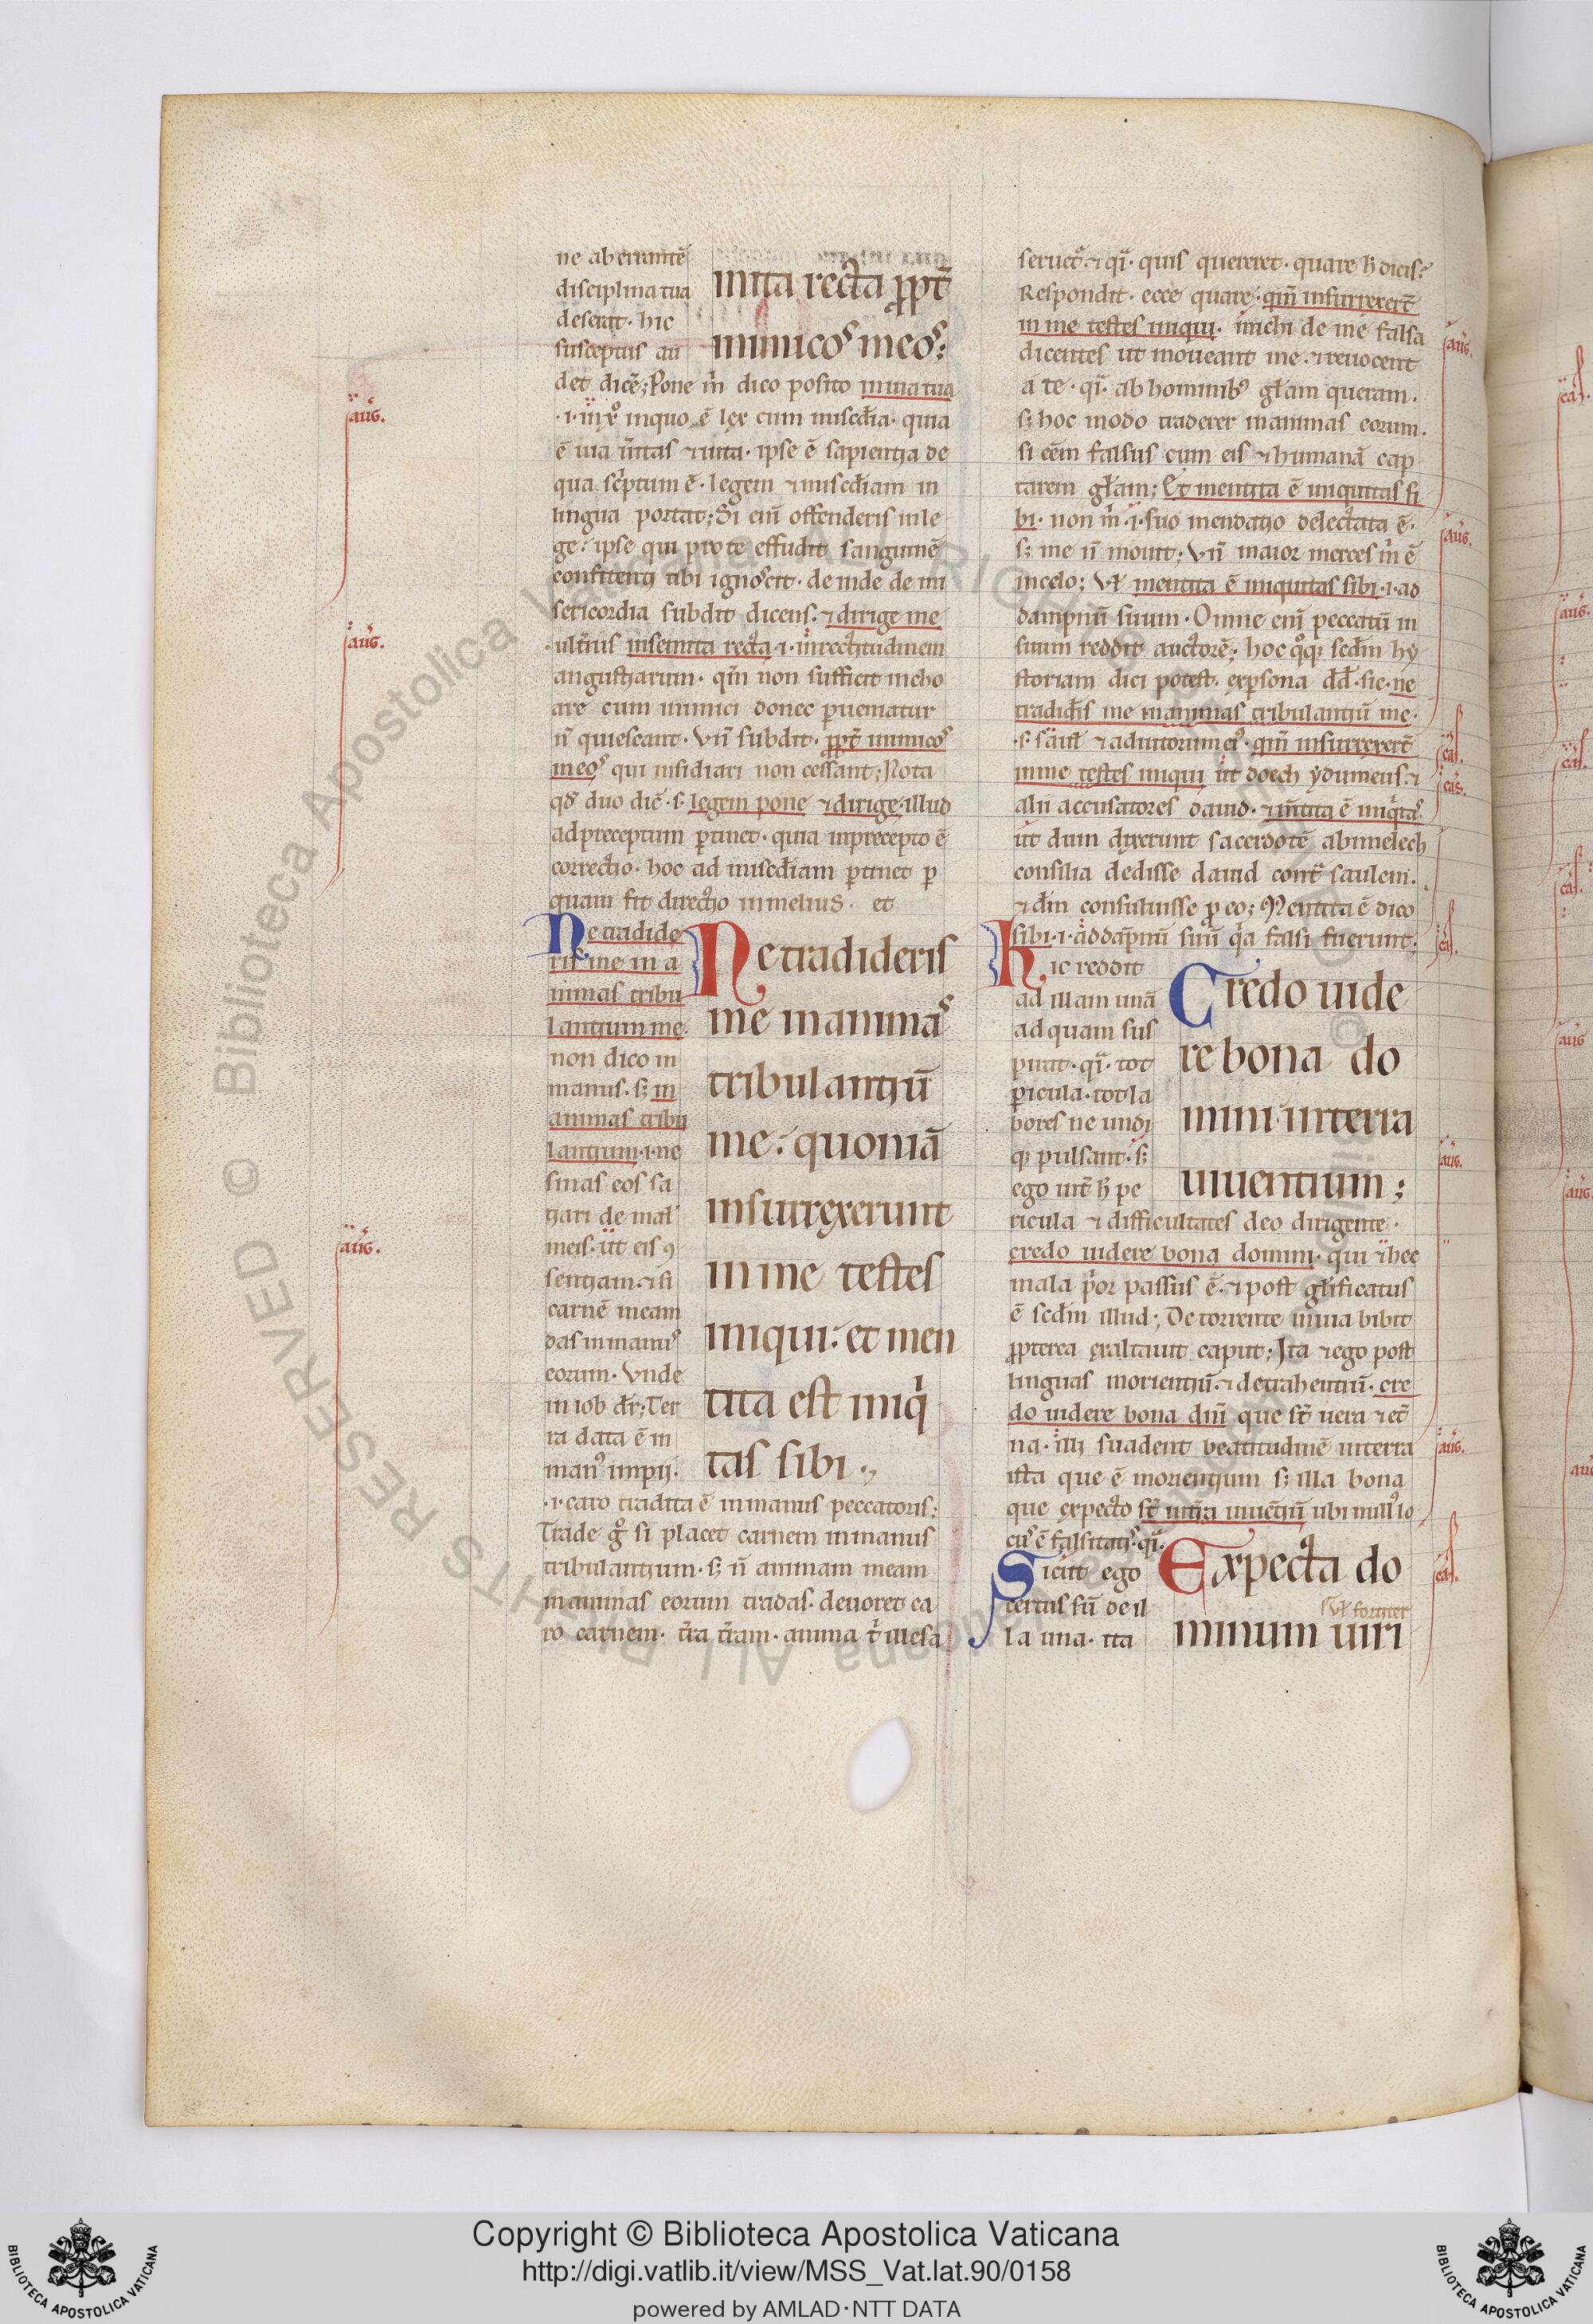 ne aberrantē
disciplina tua
deserat · hic
susceptus au
mita recta ꝓpt̄
inimicos meos;
det dicē; Pone m̄ dico posito in uia tua
·i· in xp̄o in quo ē lex cum misc̄dia · quia
ē uia ūitas ⁊ uita · ipse ē sapientia de
qua scͥptum ē · legem ⁊ misc̄diam in
lingua portat; Si eni offenderis in le
ge : ipse qui pro te effudit sanguinē
confitenti tibi ignoscit · de inde de mi
sericordia subdit dicens · ⁊ dirige me
ult̄ius in semita recta ·i· in rectitudinem
angustiarum · qm̄ non sufficit incho
are cum inimici donec ꝑueniatur
n̄ quiescant · Vn̄ subdit · ꝓpt̄ inimicos
meos qui insidiari non cessant; Nota
qd̄ duo dic̄ · s · legem pone ⁊ dirige · illud
ad preceptum ꝑtinet · quia in precepto ē
correctio · hoc ad misc̄diam ꝑtinet ꝑ
quam fit directio in melius · et
Ne tradide
ris me in a
nimas tribu
lantium me
non dico in
manus · sꝫ in
animas tribu
lantium ·i· ne
sinas eos sa
tiari de mal
meis · ut eis ꝯ
sentiam · ⁊ si
carnē meam
das in manus
eorum · Vnde
in iob dr̄; Ter
ra data ē in
manꝰ impij ·
Ne tradideris
me in animas
tribulantiū
me : quoniā
insurrexerunt
in me testes
iniqui : et men
tita est iniqͥ
tas sibi ·
·i· caro tradita ē in manus peccatoris;
Trade gͦ si placet carnem in manus
tribulantium · sꝫ n̄ animam meam
in animas eorum tradas · deuoret ca
ro carnem · t̄ra t̄ram · anima t̄ illesa
seruet̄ · ⁊ qͣ · quis quereret · quare h̄ dicis?
Respondit · ecce quare · qm̄ insurrexert̄
in me testes iniqui · inichi de me falsa
dicentes ut moueant me · ⁊ reuocent
a te · qͣ · ab hominibꝰ gl̄am queram ·
sꝫ hoc modo traderer in animas eorum ·
si eēm falsus cum eis ⁊ humanā cap
tarem gl̄am; Et mentita ē iniquitas si
bi · non m̄ ·i· suo mendatio delectata ē ·
sꝫ me n̄ mouit; Vn̄ maior merces m̄ ē
in celo; Vl̄ mentita ē iniquitas sibi ·i· ad
dampnū suum · Omne eni peccatū in
suum reddit auctorē; hoc qͦqꝫ scd̄m hy
storiam dici potest · ex ꝑsona dd̄ · sic · ne
tradid̄is me in animas tribulantiū me ·
·s· saul ⁊ adiutorum eiꝰ · qm̄ insurrexert̄
in me testes iniqui ut doech ydumeus · ⁊
alii accusatores dauid · ⁊ m̄tita ē iniqͥtas
ut dum dixerunt sacerdotē abimelech
consilia dedisse dauid cont̄ saulem ·
⁊ dn̄m consuluisse ꝓ eo; Mentita ē dico
sibi ·i· ad dāpnū suū qͥa falsi fuerunt;
Hic reddit
ad illam unā
ad quam sus
pirat · qͣ · tot
ꝑicula · tot la
bores ne undi
qꝫ pulsant · sꝫ
ego int̄ h̄ pe
Credo uide
re bona do
mini in terra
uiuentium;
ricula ⁊ difficultates deo dirigente ·
credo uidere bona domini · qui ⁊ hec
mala pͥor passus ē · ⁊ post gl̄ificatus
ē scd̄m illud; De torrente in uia bibit
ꝓpterea exaltauit caput; Ita ⁊ ego post
linguas morientiū · ⁊ detrahentiū · cre
do uidere bona dn̄i que st̄ uera ⁊ et̄
na · illi suadent beatitudinē in terra
ista que ē morientium sꝫ illa bona
que expecto st̄ in t̄ra uiuētiū ubi nullꝰ lo
cus ē falsitatis · qͣ ·
Sicut ego
certus sū de il
la una · ita
Expecta do
Vl̄ fortiter
minum uiri
aug.
aug.
aug.
aug.
aug.
cas.
cas.
cas.
aug.
aug.
cas.
Biblioteca Apostolica Vaticana ALL RIGHTS RESERVED ©
Copyright © Biblioteca Apostolica Vaticana
http://digi.vatlib.it/view/MSS_Vat.lat.90/0158
powered by AMLAD·NTT DATA
BIBLIOTECA APOSTOLICA VATICANA
BIBLIOTECA APOSTOLICA VATICANA